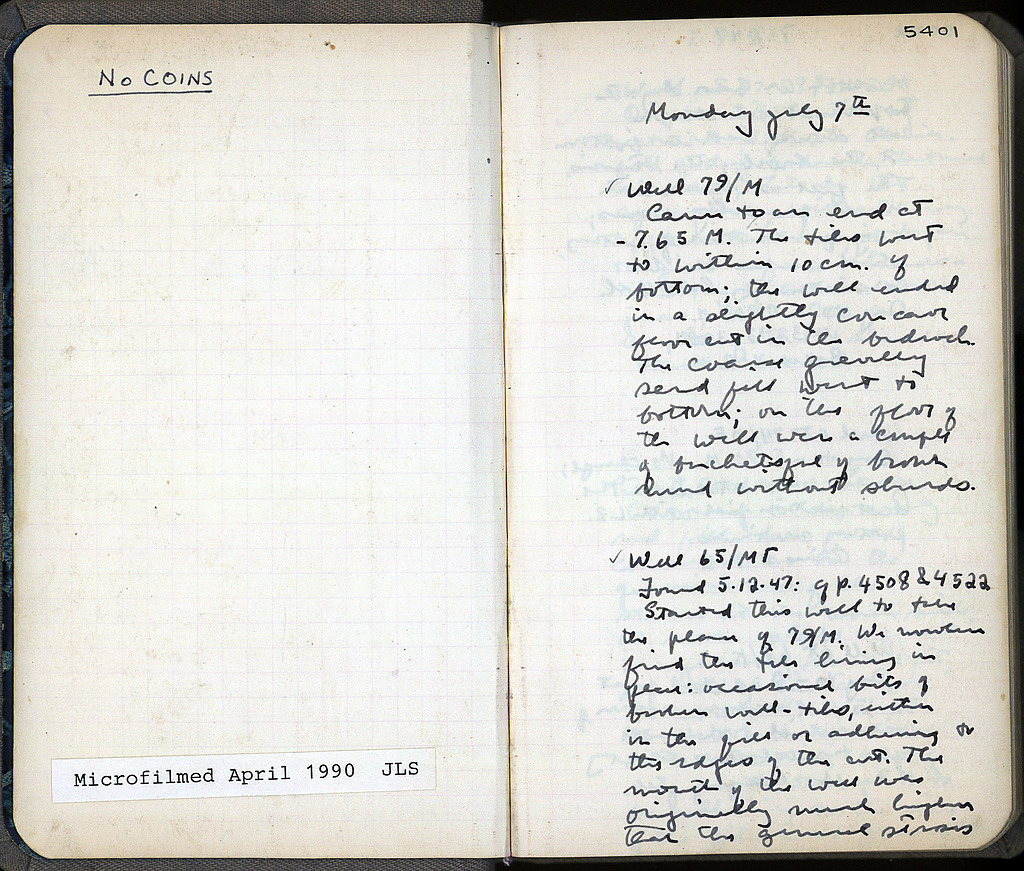 No COINS
Microfilmed April 1990 JLS
5401
Monday July 7th
✓ Well 79/M
Came to an end at
- 7.65 M. The tiles went
to within 10 cm. of
bottom; the well ended
in a slightly concave
floor cut in the bedrock.
The coarse gravelly
sand fill went to
bottom; on the floor of
the well were a couple
of bucketsful of brown
mud without sherds.
✓ Well 65/MΓ
Found 5.12.47: cf p. 4508 & 4522
Started this well to take
the place of 79/M. We nowhere
find the tile lining in
place: occasional bits of
broken well-tiles, either
in the fill or adhering to
the edges of the cut. The
mouth of the well was
originally much higher
than the general stosis